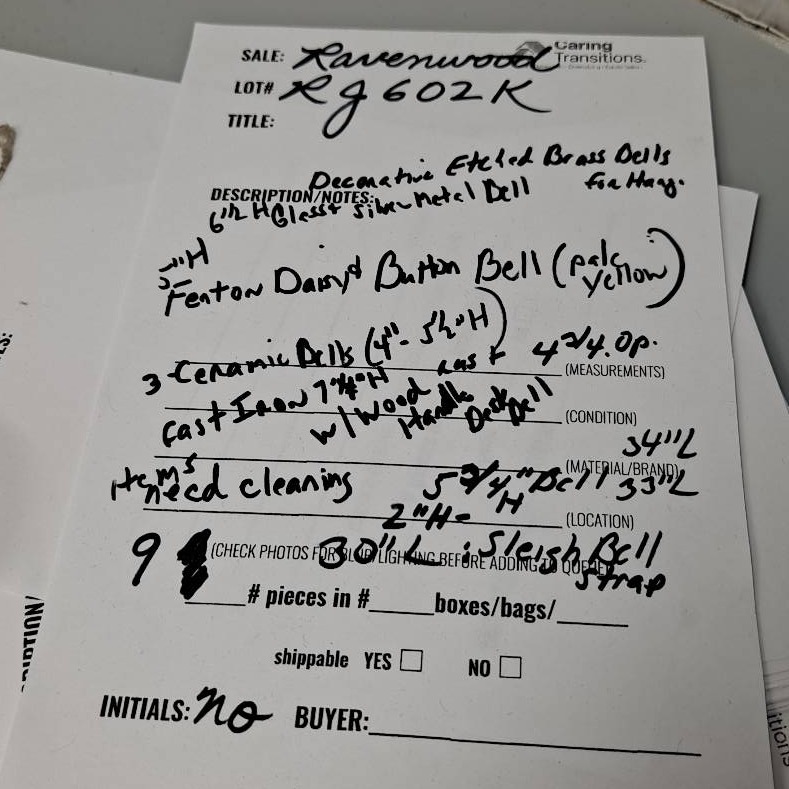 SALE: Ravenwood
Caring
Transitions
LOT# RJ602K
TITLE:
Decorative Etched Brass Bells
for Hang.
DESCRIPTION/NOTES:
6 1/2 H Glass + Silver Metal Bell
5"H
Fenton Daisy & Button Bell (pale
yellow)
3 Ceramic Bells (4"- 5 1/2"H)
4 3/4. Op.
(MEASUREMENTS)
Cast Iron 7 1/4"H
w/Wood
Handle
Desk Bell
(CONDITION)
34"L
(MATERIAL/BRAND)
Items
need cleaning
5 3/4"
H
Bell 33"L
2"H-
(LOCATION)
9
(CHECK PHOTOS FOR BLUR/LIGHTING BEFORE ADDING TO QUEUE)
30"L : Sleigh Bell
Strap
# pieces in # boxes/bags/
shippable YES NO
INITIALS: NO BUYER: